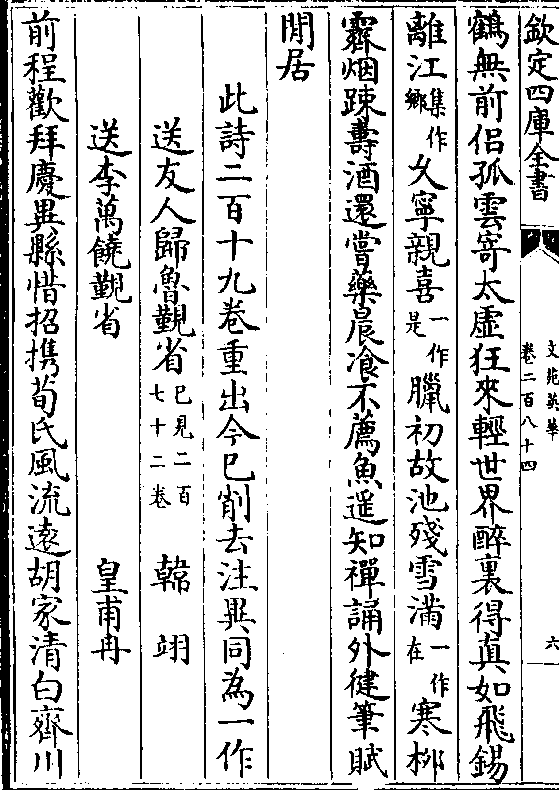 欽定四庫全書
文苑英華
卷二百八十四
六
鶴無前侶孤雲寄太虛狂來輕世界醉裏得真如飛錫
離江集作鄉久寧親喜一作是臘初故池殘雪滿一作在寒柳
霽烟踈壽酒還嘗藥晨飡不薦魚遥知禪誦外健筆賦
閒居
此詩二百十九卷重出今已削去注異同為一作
送友人歸魯覲省已見二百七十二卷 韓翃
送李萬饒覲省 皇甫冉
前程歡拜慶異縣惜招携荀氏風流逺胡家清白齊川